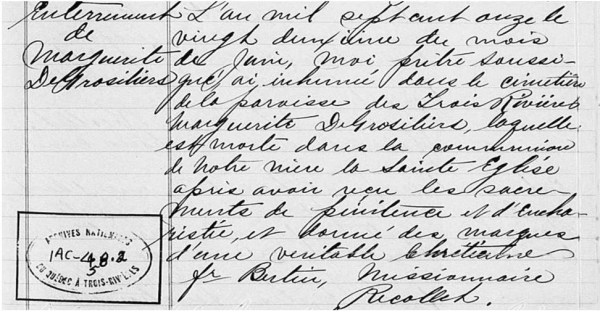 Enterrement
de
Marguerite
DeGrosiliers
L'an mil sept cent onze le
vingt deuxième du mois
de Juin, moi prêtre soussi-
gné, ai inhumé dans le cimetière
de la paroisse des Trois Rivières
Marguerite DeGrosiliers, laquelle
est morte dans la communion
de notre mère la Sainte Eglise
après avoir reçu les sacre-
ments de pénitence et d'Eucha-
ristie, et donné des marques
d'une véritable Chrétienne
fr Bertin, Missionnaire
Recollet.
ARCHIVES NATIONALES
IAC-48.2
5
DU QUÉBEC À TROIS-RIVIÈRES